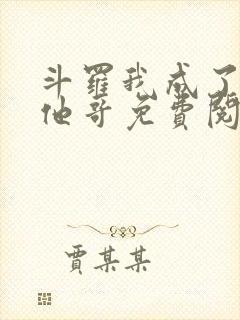 斗羅我成了
他哥免費閱
賈某某